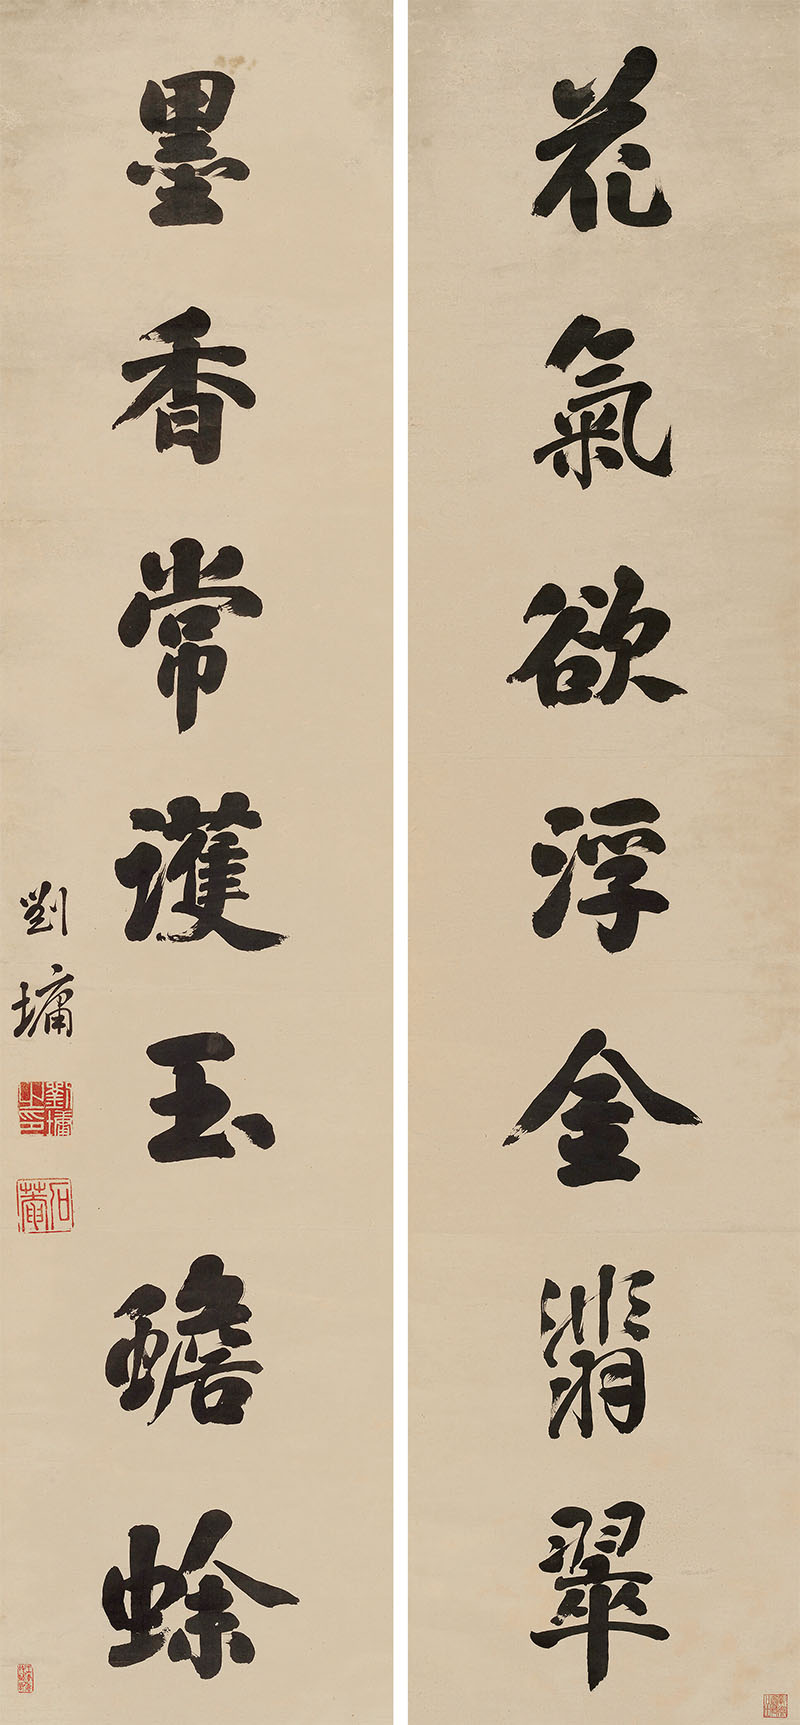 花氣欲浮金翡翠
墨香常護玉蟾蜍
劉墉
劉墉之印
石菴